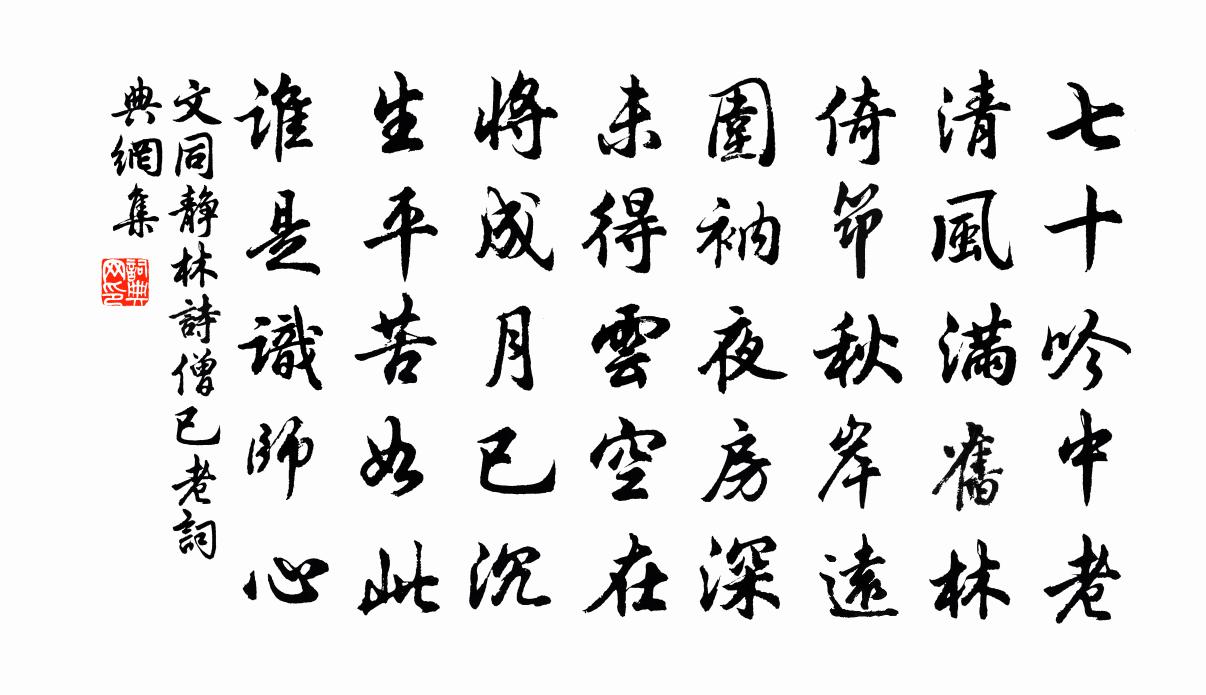 七十吟中老
清風滿舊林
倚筇秋岸遠
圍衲夜房深
未得雲空在
將成月已沉
生平苦如此
誰是識師心
文同靜林詩僧已老詞
典網集
詞典網印